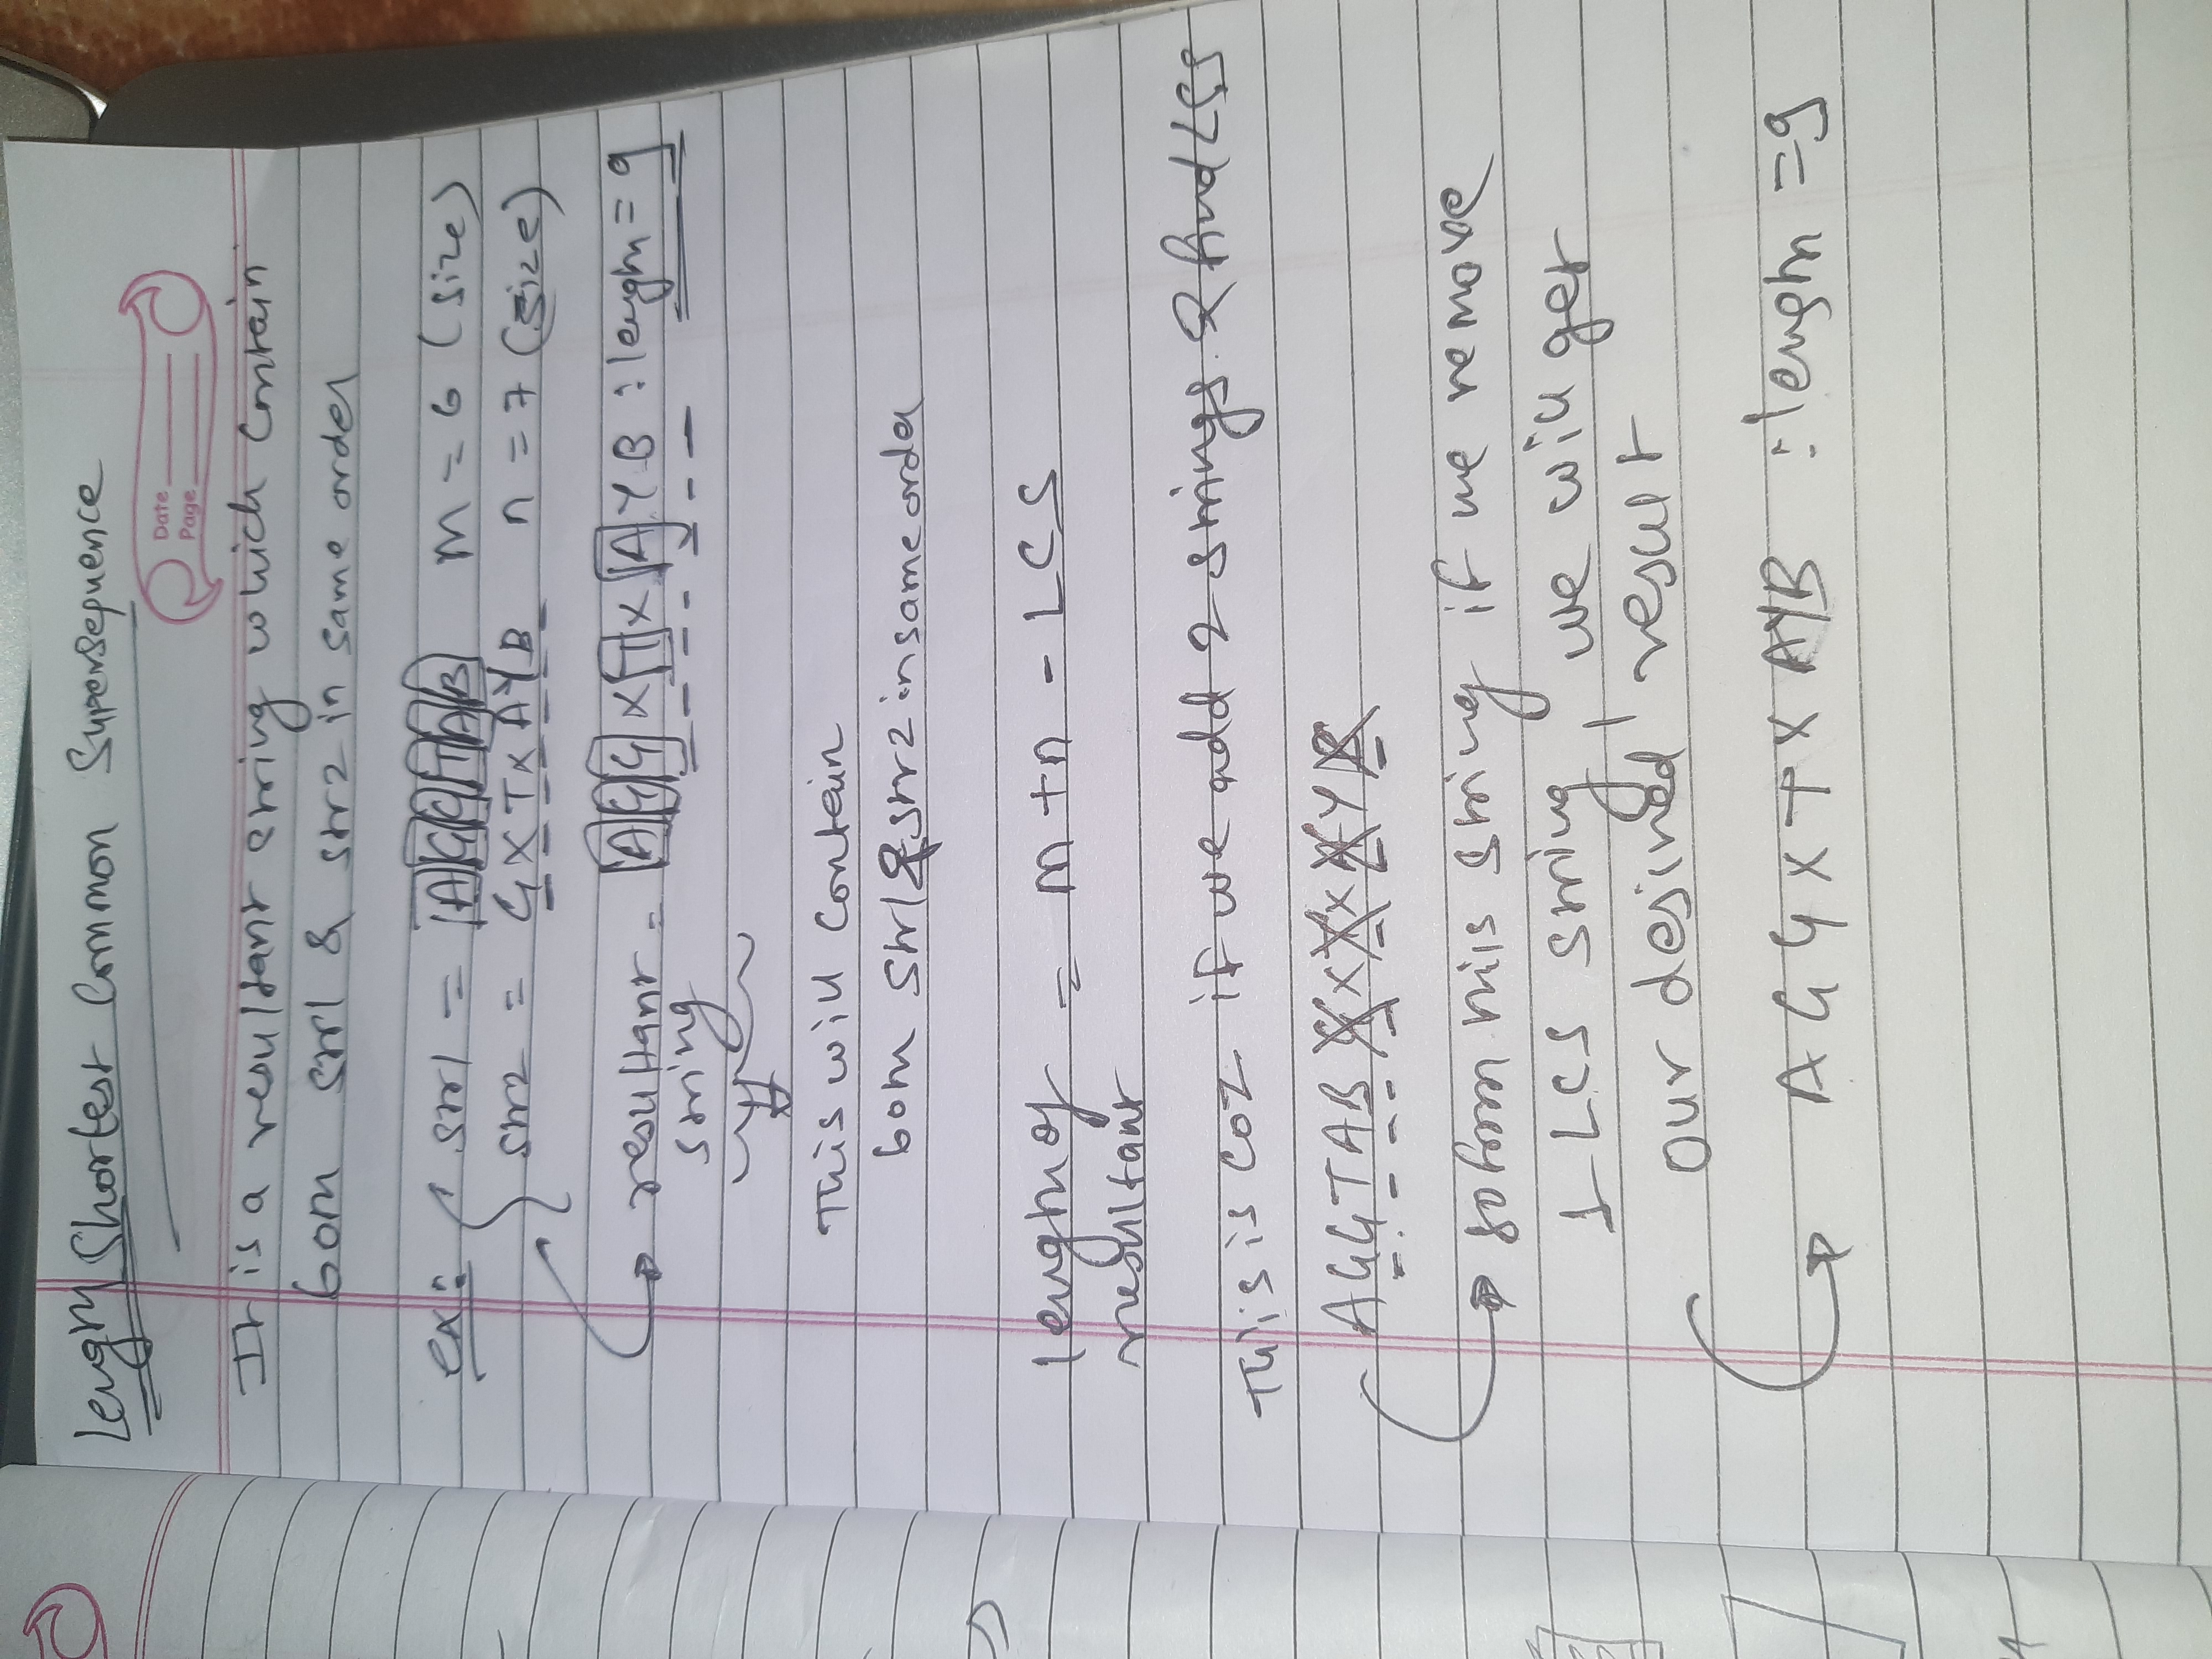 Length Shortest Common Supersequence
Date
Page
It is a resultant string which contain
both str1 & str2 in same order
ex: str1 = AGGTAB m = 6 (size)
str2 = GXTXAYB n = 7 (size)
resultant = AGGXTXAYB : length = 9
string
This will contain
both str1 & str2 in same order
length of = m + n - LCS
resultant
This is coz if we add 2 strings & find LCS
AGGTAB GXTXAYB
so from this string if we remove
1 LCS string, we will get
our desired result
AGGXTXAYB : length = 9